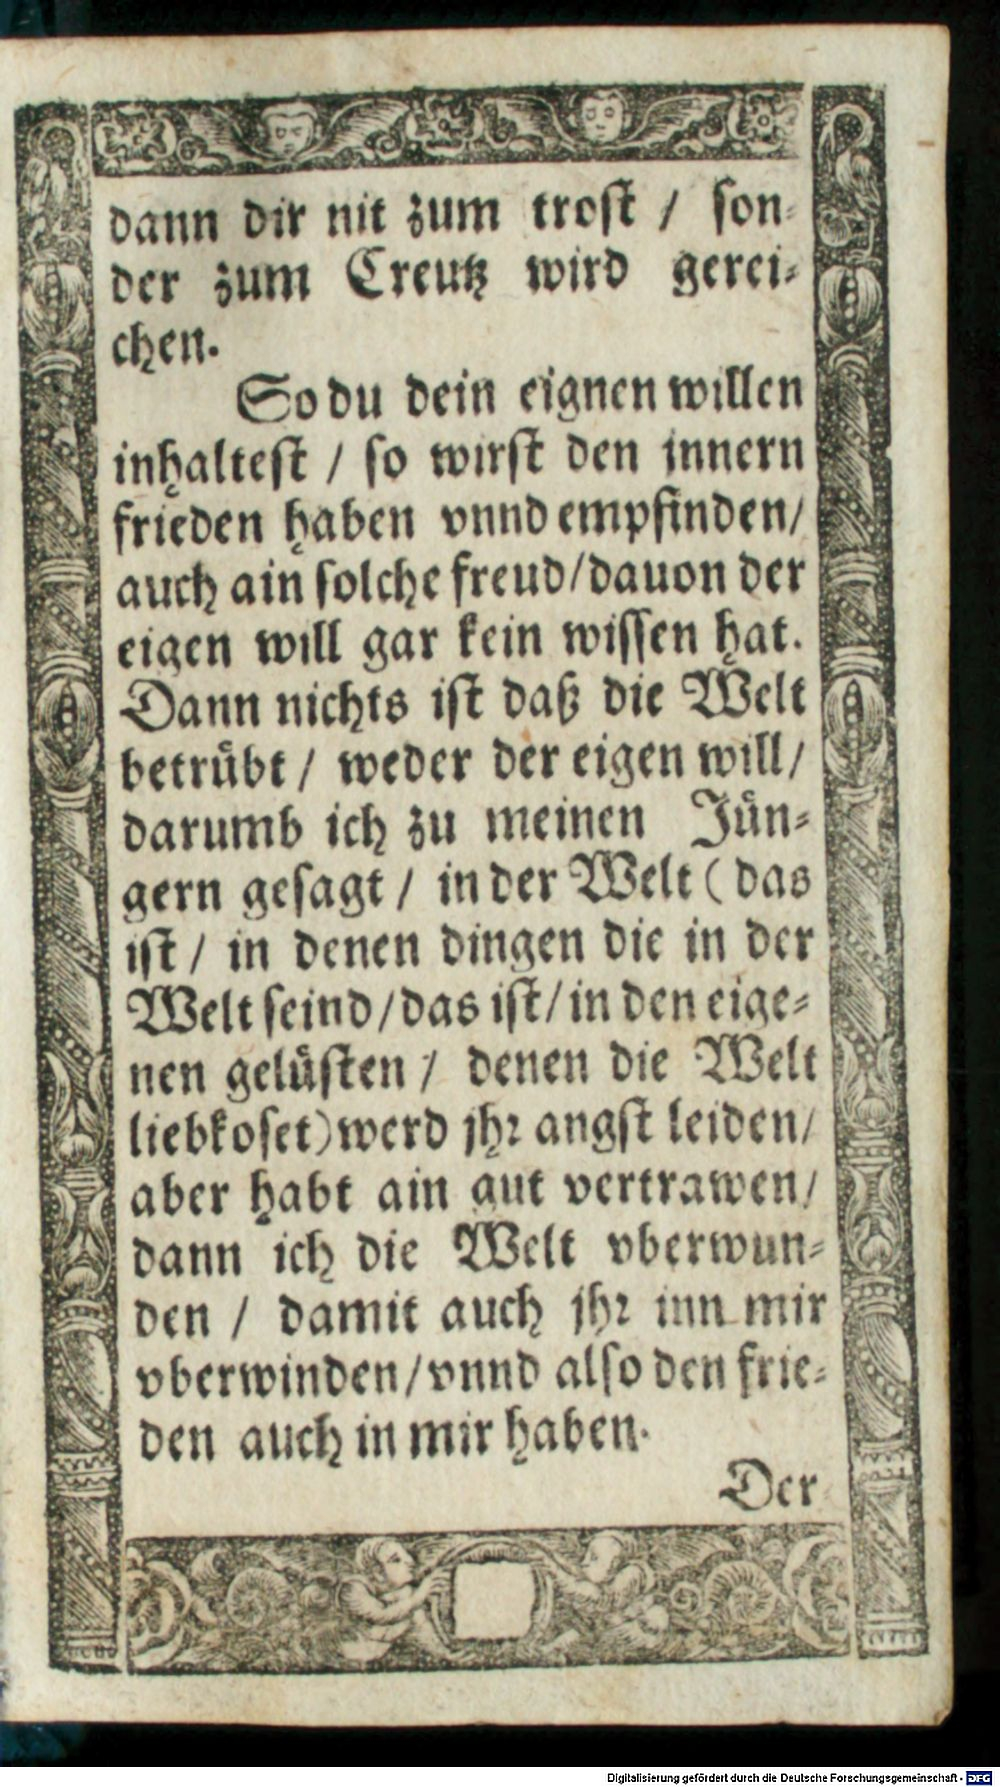 dann dir nit zum trost / son-
der zum Creutz wird gerei-
chen.
So du dein eignen willen
inhaltest / so wirst den innern
frieden haben vnnd empfinden/
auch ain solche freud/dauon der
eigen will gar kein wissen hat.
Dann nichts ist daß die Welt
betrübt / weder der eigen will/
darumb ich zu meinen Jün-
gern gesagt / in der Welt ( das
ist / in denen dingen die in der
Welt seind/das ist/in den eige-
nen gelüsten / denen die Welt
liebkoset) werd jhr angst leiden/
aber habt ain gut vertrawen/
dann ich die Welt vberwun-
den / damit auch jhr inn mir
vberwinden/vnnd also den frie-
den auch in mir haben.
Der
Digitalisierung gefördert durch die Deutsche Forschungsgemeinschaft - DFG